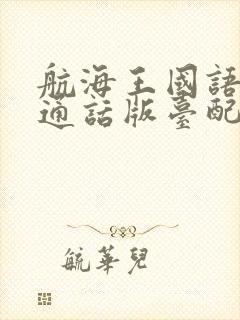 航海王國語
通話版臺配
毓華兒